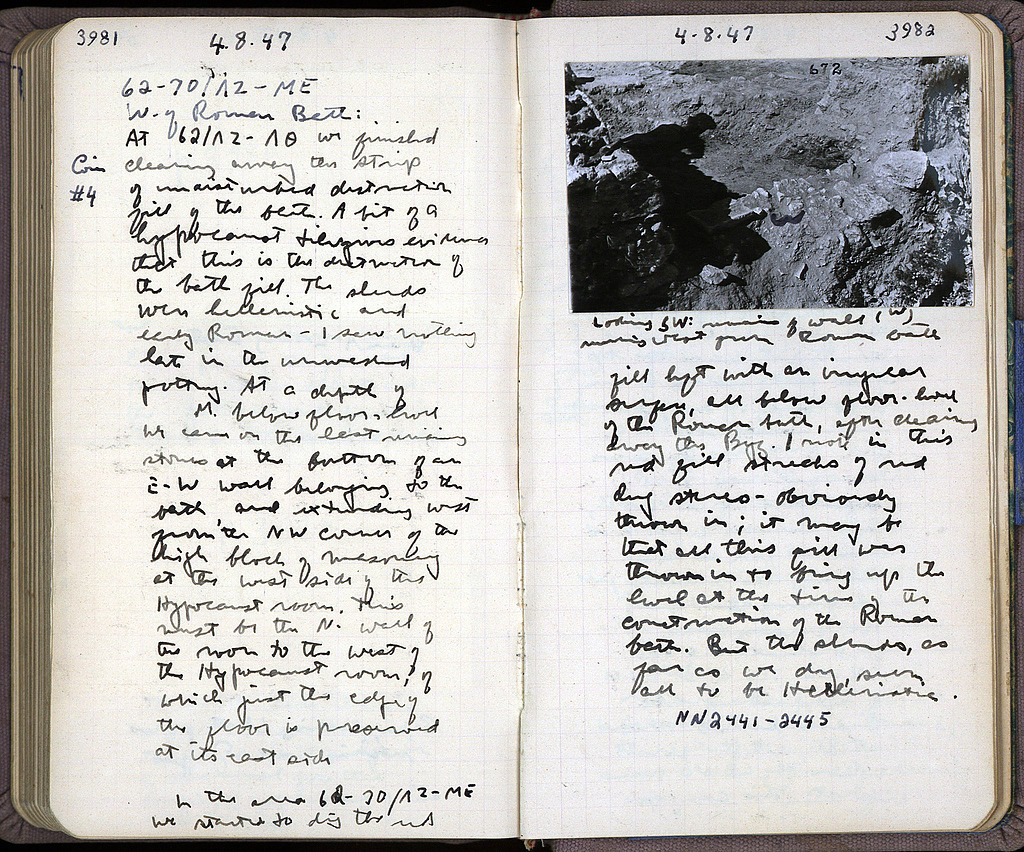 3981
4.8.47
62-70/ΛΖ-ΜΕ
W. of Roman Bath:
At 62/ΛΖ-ΛΘ we finished
Coin
#4
clearing away this strip
of undisturbed destruction
fill of the bath. A bit of a
hypocaust tile gives evidence
that this is the destruction of
the bath fill. The sherds
were hellenistic and
early Roman - I saw nothing
late in the unwashed
pottery. At a depth of
M. below floor-level
we came on the last remaining
stones at the bottom of an
E-W wall belonging to the
bath, and extending west
from the NW corner of the
high block of masonry
at the west side of the
Hypocaust room. This
must be the N. wall of
the room to the west of
the Hypocaust room, of
which just the edge of
the floor is preserved
at its east side
In the area 62-70/ΛΖ-ΜΕ
we started to dig the red
4-8-47
3982
672
Looking SW: remains of wall (W)
west from Roman bath
fill left with an irregular
surface, all below floor-level
of the Roman bath, after clearing
away the Byz. I note in this
red fill streaks of red
dug stereo - obviously
thrown in; it may be
that all this fill was
thrown in to bring up the
level at the time of the
construction of the Roman
bath. But the sherds, as
far as we dug, seem
all to be Hellenistic.
NN2441-2445